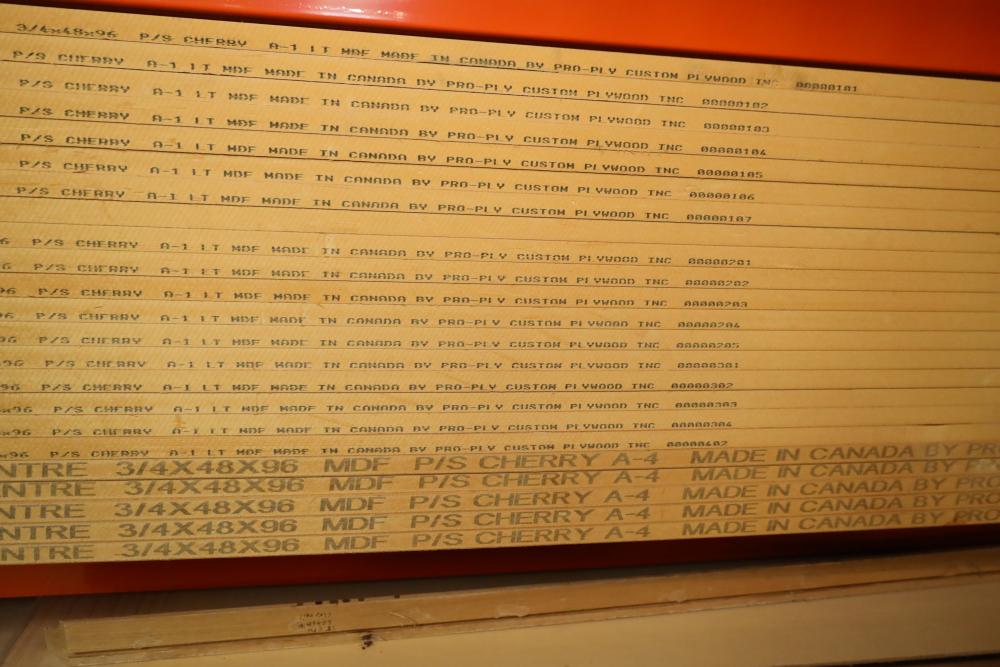 3/4x48x96 P/S CHERRY A-1 LT MDF MADE IN CANADA BY PRO-PLY CUSTOM PLYWOOD INC 00000101
P/S CHERRY A-1 LT MDF MADE IN CANADA BY PRO-PLY CUSTOM PLYWOOD INC 00000102
P/S CHERRY A-1 LT MDF MADE IN CANADA BY PRO-PLY CUSTOM PLYWOOD INC 00000103
P/S CHERRY A-1 LT MDF MADE IN CANADA BY PRO-PLY CUSTOM PLYWOOD INC 00000104
P/S CHERRY A-1 LT MDF MADE IN CANADA BY PRO-PLY CUSTOM PLYWOOD INC 00000105
P/S CHERRY A-1 LT MDF MADE IN CANADA BY PRO-PLY CUSTOM PLYWOOD INC 00000106
P/S CHERRY A-1 LT MDF MADE IN CANADA BY PRO-PLY CUSTOM PLYWOOD INC 00000107
6 P/S CHERRY A-1 LT MDF MADE IN CANADA BY PRO-PLY CUSTOM PLYWOOD INC 00000201
6 P/S CHERRY A-1 LT MDF MADE IN CANADA BY PRO-PLY CUSTOM PLYWOOD INC 00000202
96 P/S CHERRY A-1 LT MDF MADE IN CANADA BY PRO-PLY CUSTOM PLYWOOD INC 00000203
96 P/S CHERRY A-1 LT MDF MADE IN CANADA BY PRO-PLY CUSTOM PLYWOOD INC 00000204
96 P/S CHERRY A-1 LT MDF MADE IN CANADA BY PRO-PLY CUSTOM PLYWOOD INC 00000205
96 P/S CHERRY A-1 LT MDF MADE IN CANADA BY PRO-PLY CUSTOM PLYWOOD INC 00000301
96 P/S CHERRY A-1 LT MDF MADE IN CANADA BY PRO-PLY CUSTOM PLYWOOD INC 00000302
x96 P/S CHERRY A-1 LT MDF MADE IN CANADA BY PRO-PLY CUSTOM PLYWOOD INC 00000303
x96 P/S CHERRY A-1 LT MDF MADE IN CANADA BY PRO-PLY CUSTOM PLYWOOD INC 00000304
x96 P/S CHERRY A-1 LT MDF MADE IN CANADA BY PRO-PLY CUSTOM PLYWOOD INC 00000402
NTRE 3/4X48X96 MDF P/S CHERRY A-4 MADE IN CANADA BY PR
NTRE 3/4X48X96 MDF P/S CHERRY A-4 MADE IN CANADA BY PRO
NTRE 3/4X48X96 MDF P/S CHERRY A-4 MADE IN CANADA BY PRO
NTRE 3/4X48X96 MDF P/S CHERRY A-4 MADE IN CANADA BY PRO
NTRE 3/4X48X96 MDF P/S CHERRY A-4 MADE IN CANADA BY PRO